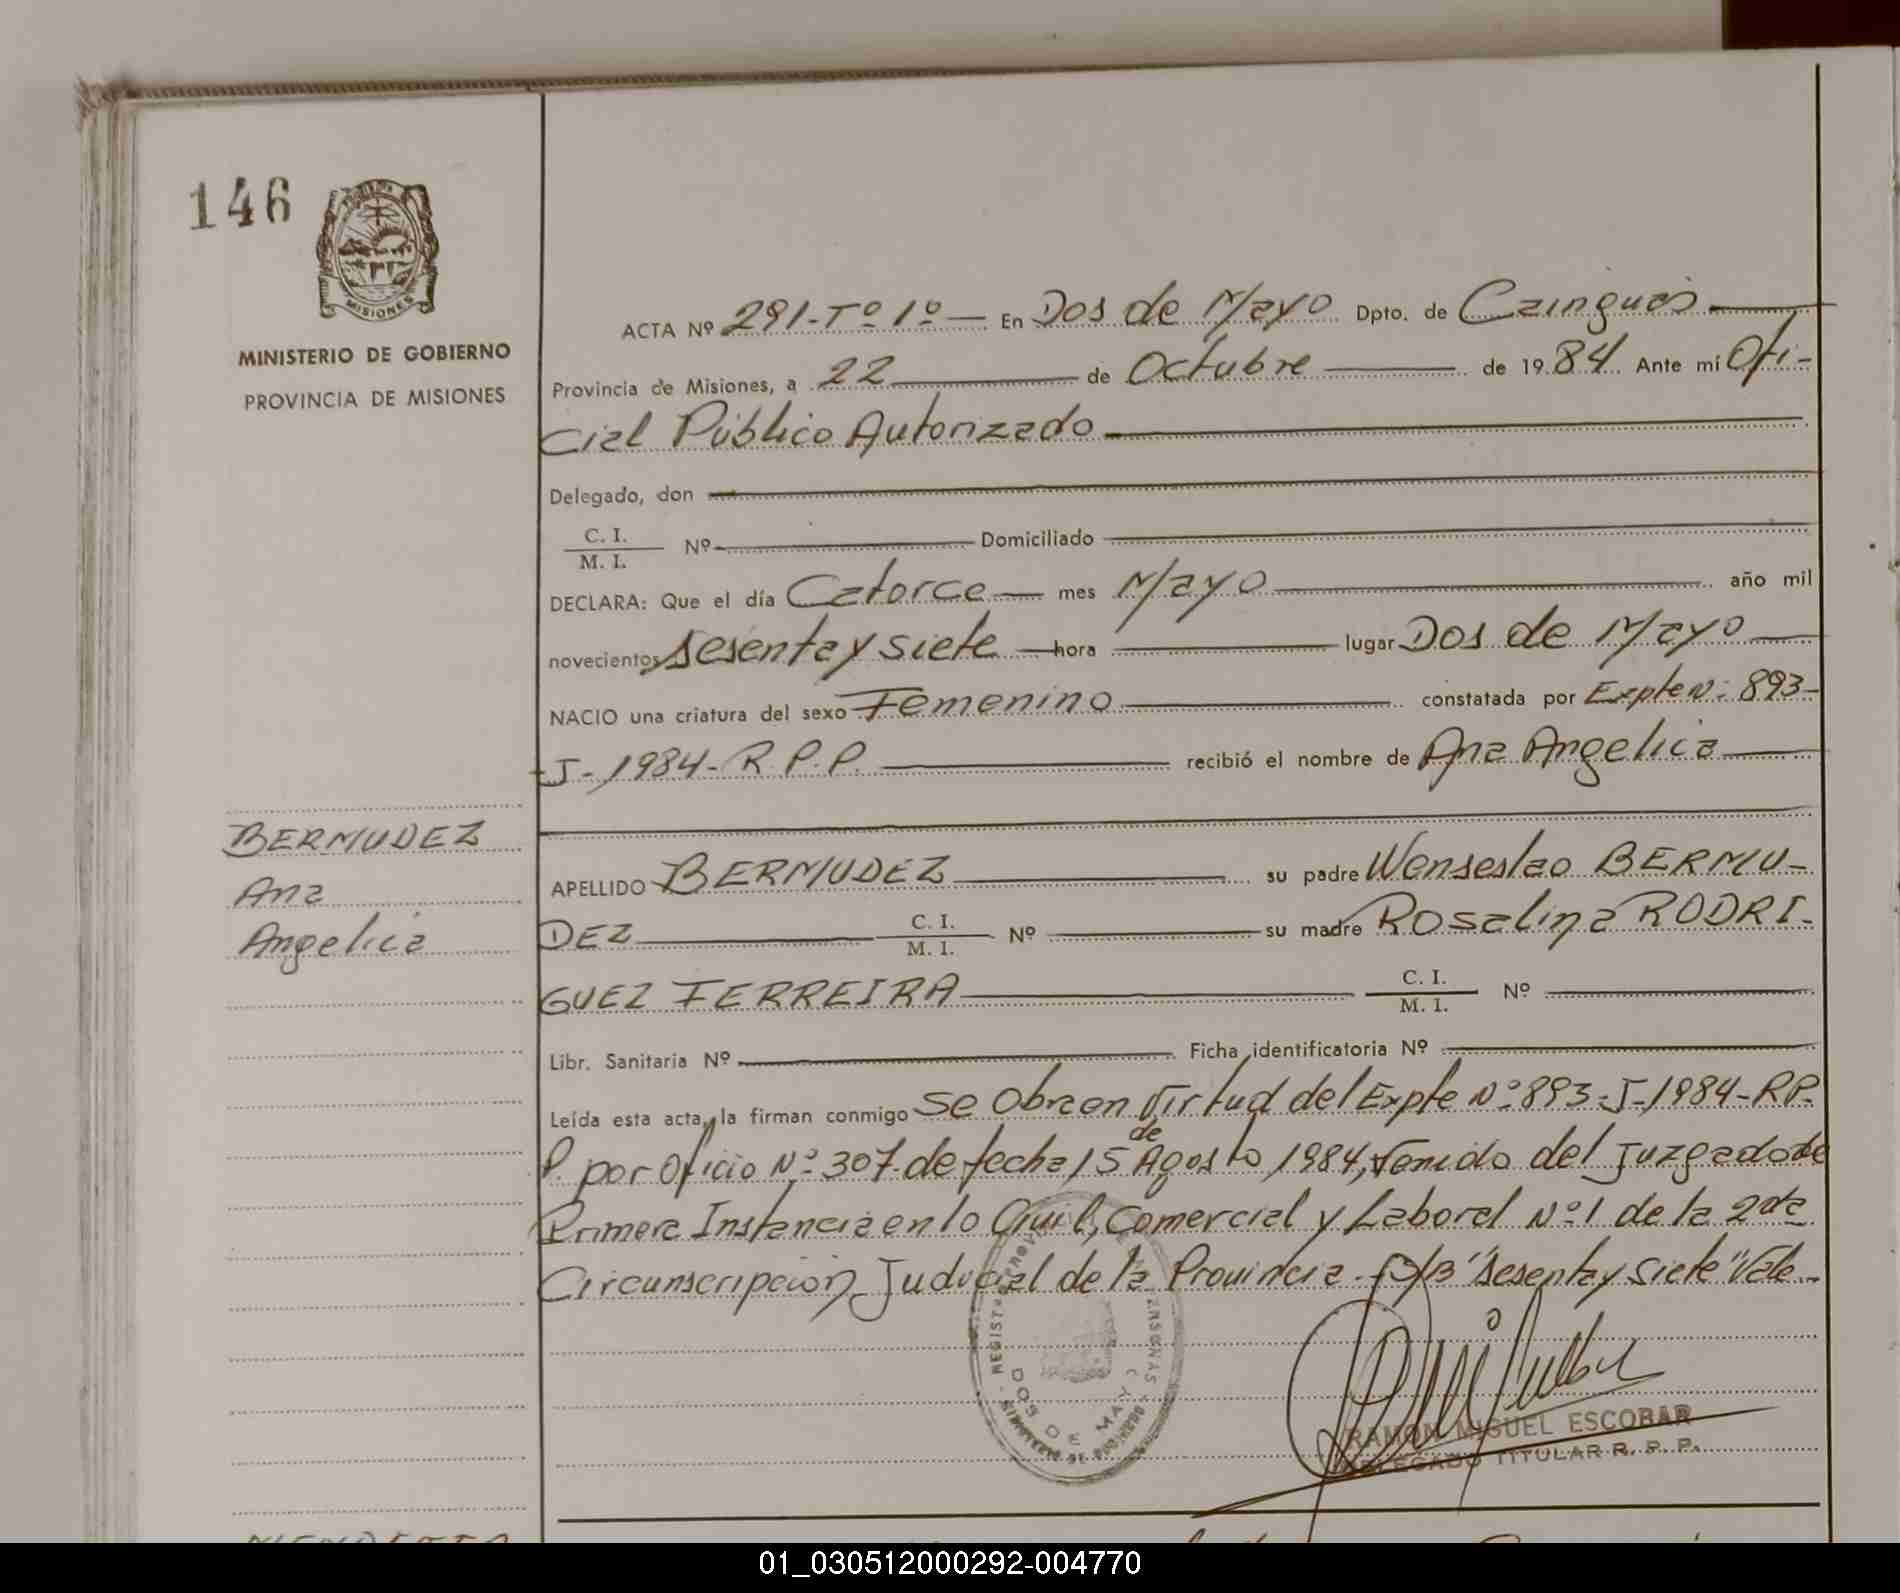 146
MISIONES
MINISTERIO DE GOBIERNO
PROVINCIA DE MISIONES
BERMUDEZ
Ana
Angelica
ACTA Nº 291-Tº 1º — En Dos de Mayo Dpto. de Cainguás
Provincia de Misiones, a 22 de Octubre de 1984 Ante mí Ofi-
cial Público Autorizado
Delegado, don
C. I.
M. I. Nº Domiciliado
DECLARA: Que el día Catorce mes Mayo año mil
novecientos sesenta y siete hora lugar Dos de Mayo
NACIO una criatura del sexo Femenino constatada por Expte Nº 893-
J-1984-R.P.P. recibió el nombre de Ana Angelica
APELLIDO BERMUDEZ su padre Wenseslao BERMU-
DEZ C. I. M. I. Nº su madre Rosalina RODRI-
GUEZ FERREIRA C. I. M. I. Nº
Libr. Sanitaria Nº Ficha identificatoria Nº
Leída esta acta, la firman conmigo Se Obra en Virtud del Expte Nº 893-J-1984-RP.
P. por Oficio Nº 307 de fecha 15 de Agosto 1984, venido del Juzgado de
Primera Instancia en lo Civil, Comercial y Laboral Nº 1 de la 2da
Circunscripción Judicial de la Provincia. S/B "sesenta y siete" Vale.
DOS DE MAYO
RAMON MIGUEL ESCOBAR
DELEGADO TITULAR R. P. P.
01_030512000292-004770